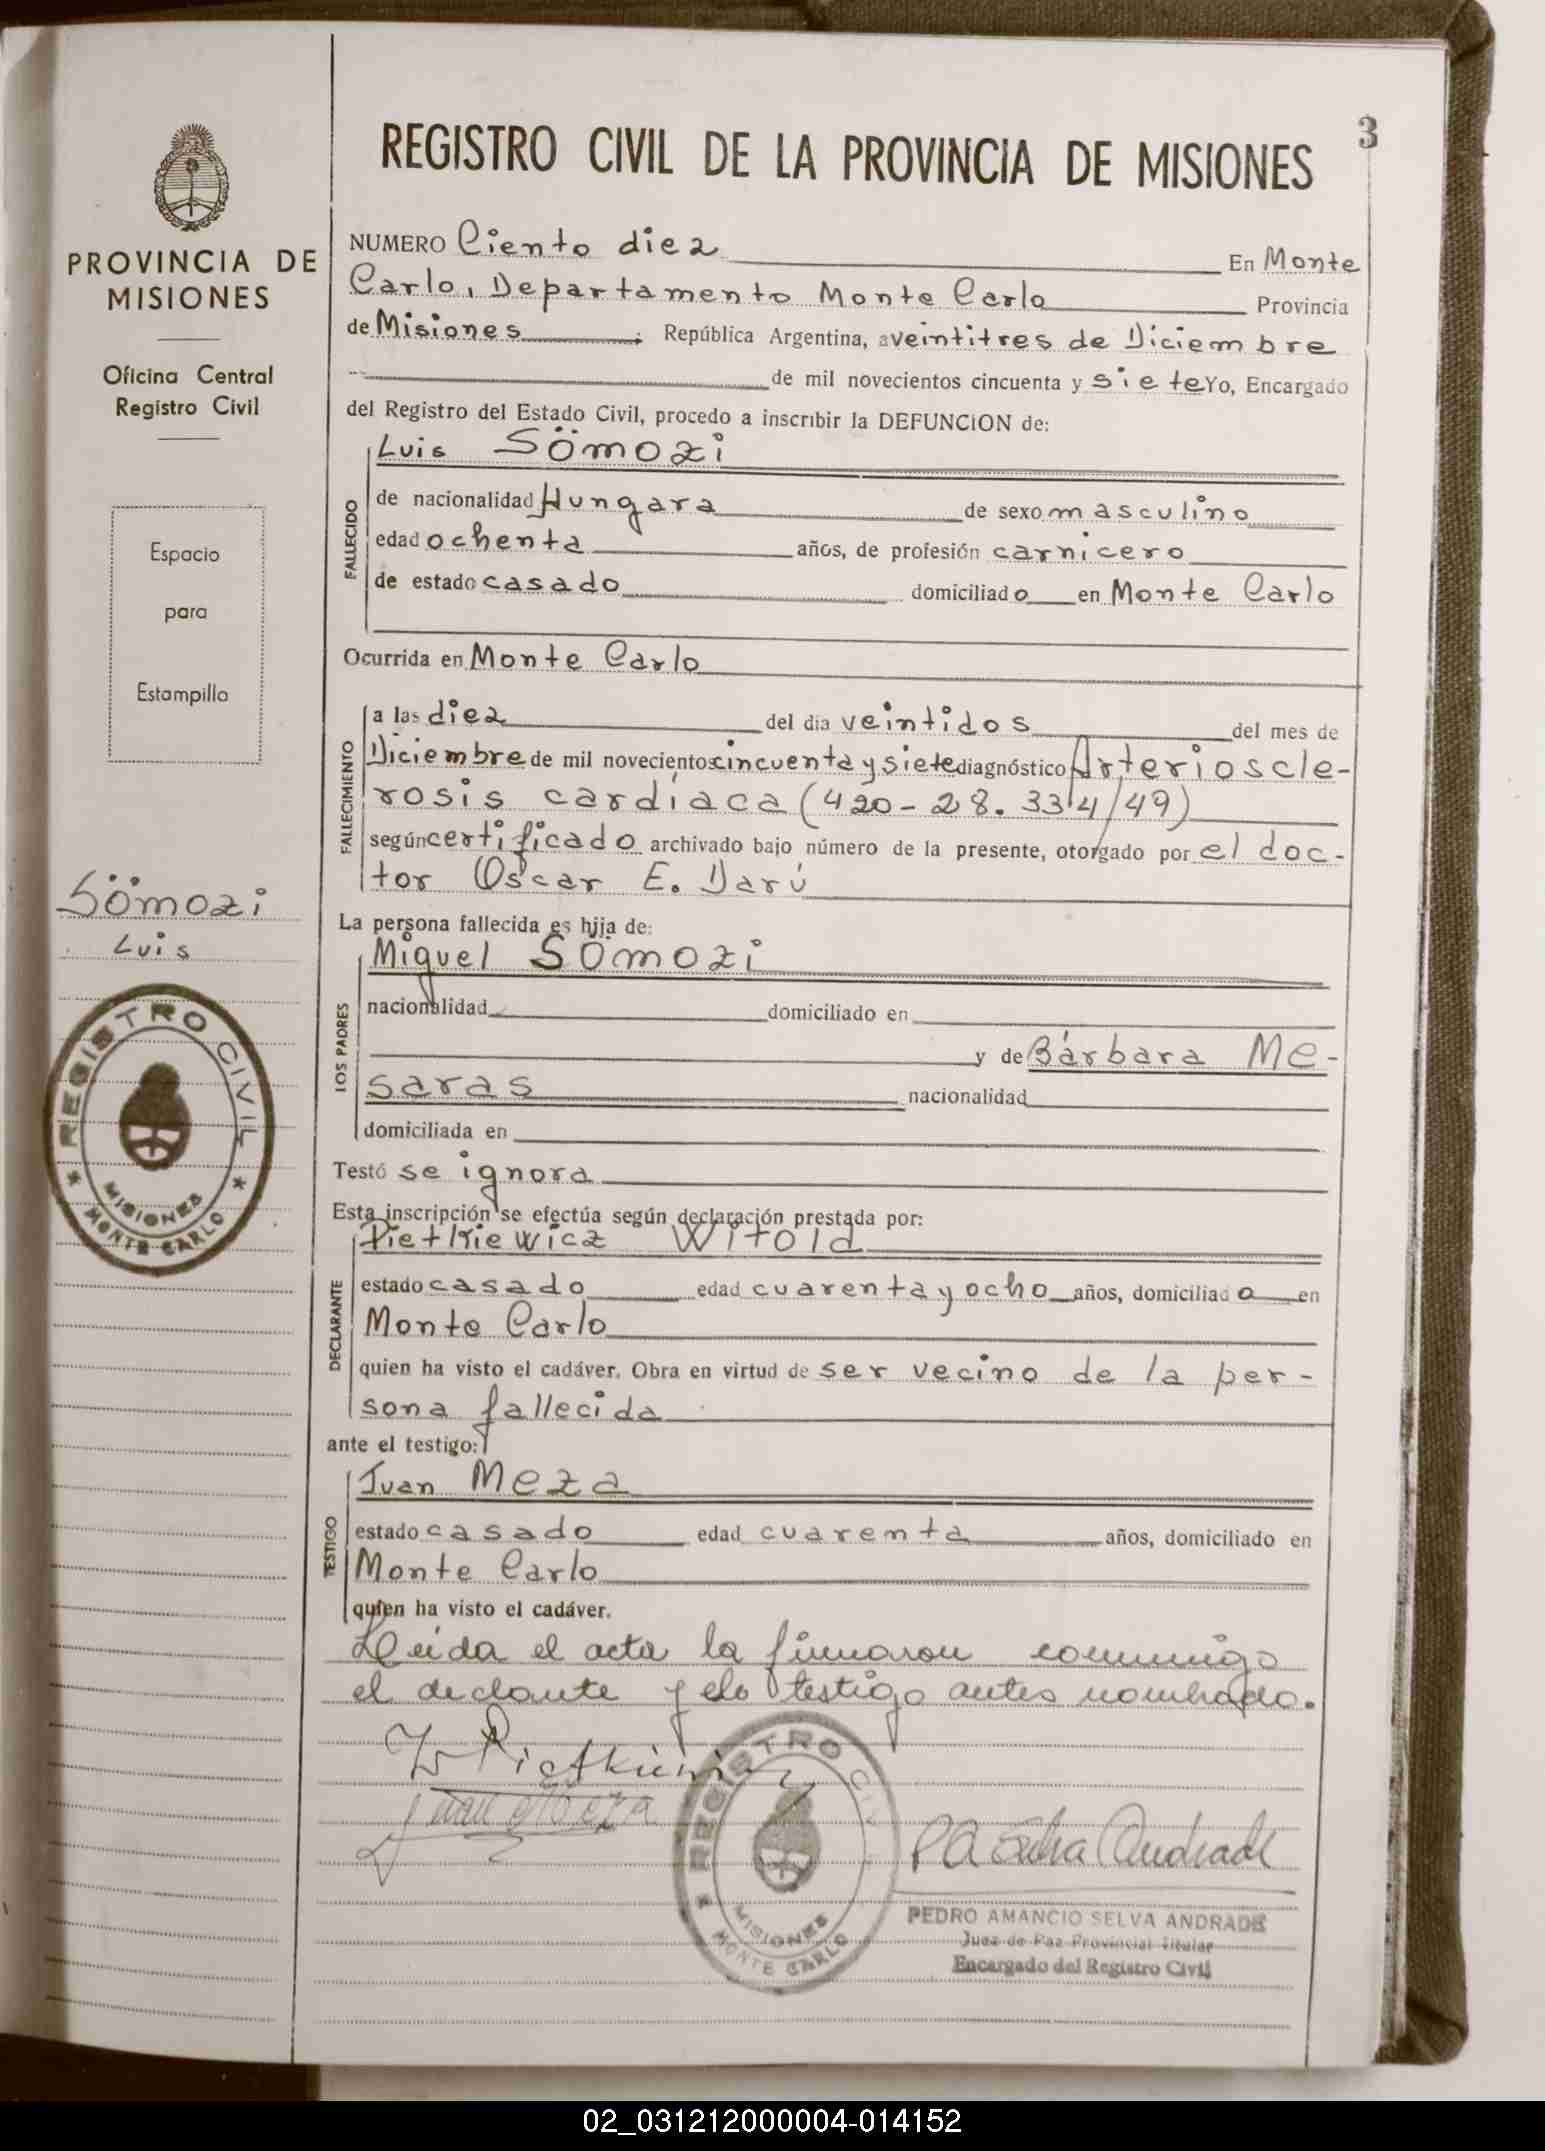 3
REGISTRO CIVIL DE LA PROVINCIA DE MISIONES
PROVINCIA DE
MISIONES
Oficina Central
Registro Civil
Espacio
para
Estampilla
Sömozi
Luis
REGISTRO CIVIL
MISIONES
MONTE CARLO
NUMERO Ciento diez En Monte
Carlo, Departamento Monte Carlo Provincia
de Misiones ; República Argentina, a veintitres de Diciembre
de mil novecientos cincuenta y siete Yo, Encargado
del Registro del Estado Civil, procedo a inscribir la DEFUNCION de:
Luis Sömozi
FALLECIDO
de nacionalidad Hungara de sexo masculino
edad ochenta años, de profesión carnicero
de estado casado domiciliado en Monte Carlo
Ocurrida en Monte Carlo
FALLECIMIENTO
a las diez del dia veintidos del mes de
Diciembre de mil novecientos cincuenta y siete diagnóstico Arterioscle-
rosis cardíaca (420-28.334/49)
según certificado archivado bajo número de la presente, otorgado por el doc-
tor Oscar E. Darú
La persona fallecida es hija de:
Miguel Sömozi
LOS PADRES
nacionalidad domiciliado en
y de Bárbara Me-
saras nacionalidad
domiciliada en
Testó se ignora
Esta inscripción se efectúa según declaración prestada por:
Pietkiewicz Witold
DECLARANTE
estado casado edad cuarenta y ocho años, domiciliado en
Monte Carlo
quien ha visto el cadáver. Obra en virtud de ser vecino de la per-
sona fallecida
ante el testigo:
Juan Meza
TESTIGO
estado casado edad cuarenta años, domiciliado en
Monte Carlo
quien ha visto el cadáver.
Leida el acta la firmaron conmigo
el declante y elo testigo antes nombrado.
Juan Meza
REGISTRO CIVIL
MISIONES
MONTE CARLO
PA Selva Andrade
PEDRO AMANCIO SELVA ANDRADE
Juez de Paz Provincial Titular
Encargado del Registro Civil
02_031212000004-014152